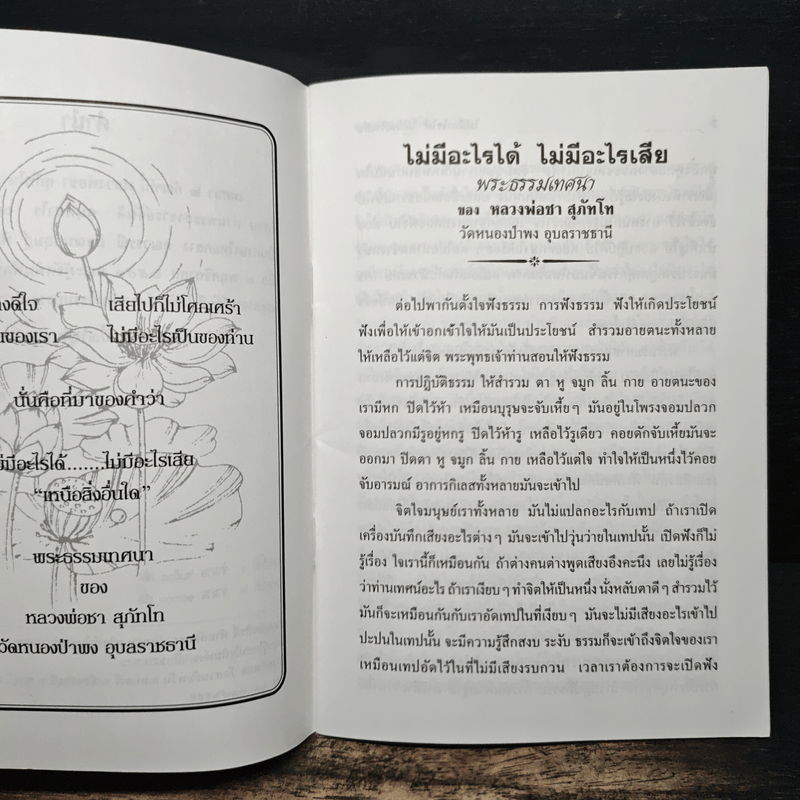 เสียไปก็ไม่โศกเศร้า
ไม่มีอะไรเป็นของท่าน
นั่นคือที่มาของคำว่า
ไม่มีอะไรเสีย
“เหนือสิ่งอื่นใด”
พระธรรมเทศนา
ของ
หลวงพ่อชา สุภัทโท
วัดหนองป่าพง อุบลราชธานี
ไม่มีอะไรได้ ไม่มีอะไรเสีย
พระธรรมเทศนา
ของ หลวงพ่อชา สุภัทโท
วัดหนองป่าพง อุบลราชธานี
ต่อไปพากันตั้งใจฟังธรรม การฟังธรรม ฟังให้เกิดประโยชน์
ฟังเพื่อให้เข้าอกเข้าใจให้มันเป็นประโยชน์ สำรวมอายตนะทั้งหลาย
ให้เหลือไว้แต่จิต พระพุทธเจ้าท่านสอนให้ฟังธรรม
การปฏิบัติธรรม ให้สำรวม ตา หู จมูก ลิ้น กาย อายตนะของ
เรามีหก ปิดไว้ห้า เหมือนบุรุษจะจับเหี้ยๆ มันอยู่ในโพรงจอมปลวก
จอมปลวกมีรูอยู่หกรู ปิดไว้ห้ารู เหลือไว้รูเดียว คอยดักจับเหี้ยมันจะ
ออกมา ปิดตา หู จมูก ลิ้น กาย เหลือไว้แต่ใจ ทำใจให้เป็นหนึ่งไว้คอย
จับอารมณ์ อาการกิเลสทั้งหลายมันจะเข้าไป
จิตใจมนุษย์เราทั้งหลาย มันไม่แปลกอะไรกับเทป ถ้าเราเปิด
เครื่องบันทึกเสียงอะไรต่างๆ มันจะเข้าไปวุ่นวายในเทปนั้น เปิดฟังก็ไม่
รู้เรื่อง ใจเรานี้ก็เหมือนกัน ถ้าต่างคนต่างพูดเสียงอึงคะนึง เลยไม่รู้เรื่อง
ว่าท่านเทศน์อะไร ถ้าเราเงียบๆ ทำจิตให้เป็นหนึ่ง นั่งหลับตาดีๆ สำรวมไว้
มันก็จะเหมือนกันกับเราอัดเทปในที่เงียบๆ มันจะไม่มีเสียงอะไรเข้าไป
ปะปนในเทปนั้น จะมีความรู้สึกสงบ ระงับ ธรรมก็จะเข้าถึงจิตใจของเรา
เหมือนเทปอัดไว้ในที่ไม่มีเสียงรบกวน เวลาเราต้องการจะเปิดฟัง